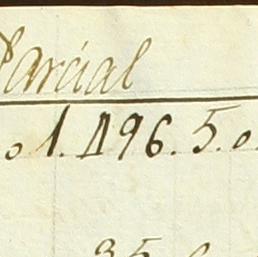 Parcial
o 1.496.5.o
35